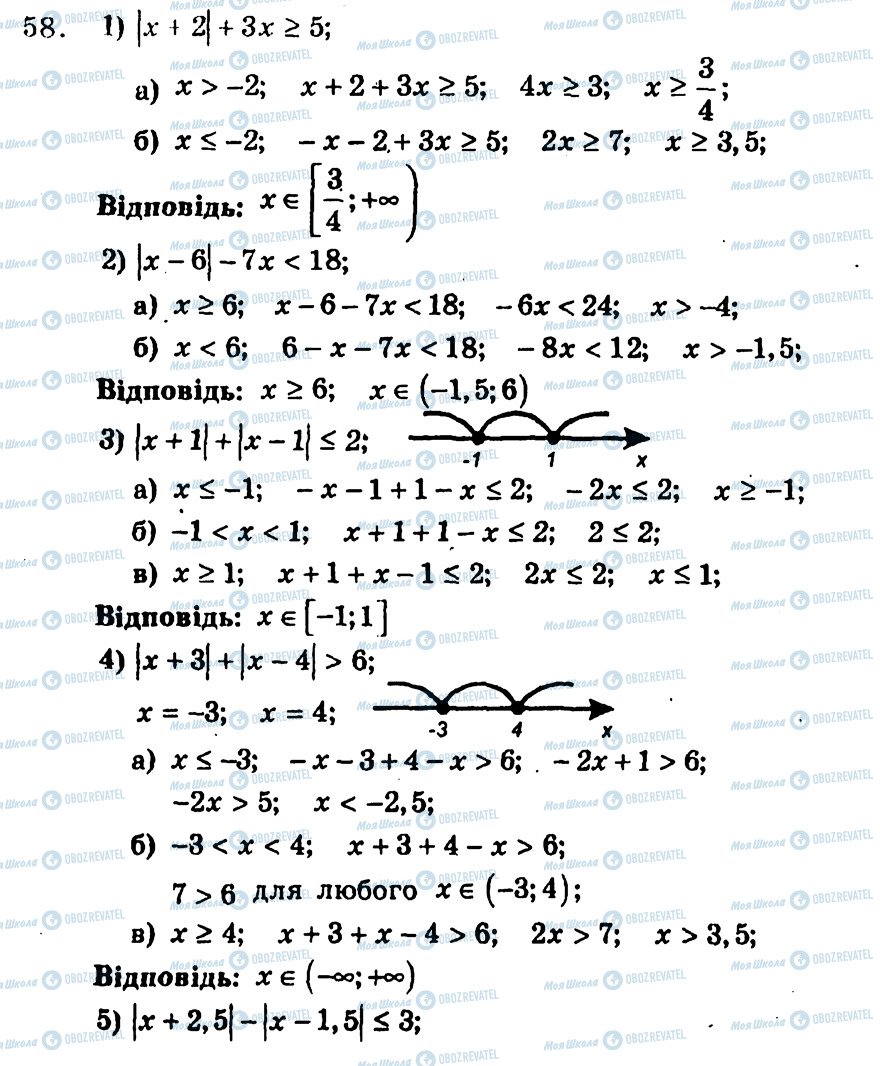 58. 1) |x + 2| + 3x ≥ 5;
а) x > –2; x + 2 + 3x ≥ 5; 4x ≥ 3; x ≥ 3/4;
б) x ≤ –2; – x – 2 + 3x ≥ 5; 2x ≥ 7; x ≥ 3,5;
Відповідь: x ∈ [3/4; +∞)
2) |x – 6| – 7x < 18;
а) x ≥ 6; x – 6 – 7x < 18; – 6x < 24; x > –4;
б) x < 6; 6 – x – 7x < 18; – 8x < 12; x > –1,5;
Відповідь: x ≥ 6; x ∈ (–1,5; 6)
3) |x + 1| + |x – 1| ≤ 2;
-1 1 x
а) x ≤ –1; – x – 1 + 1 – x ≤ 2; – 2x ≤ 2; x ≥ –1;
б) –1 < x < 1; x + 1 + 1 – x ≤ 2; 2 ≤ 2;
в) x ≥ 1; x + 1 + x – 1 ≤ 2; 2x ≤ 2; x ≤ 1;
Відповідь: x ∈ [–1; 1]
4) |x + 3| + |x – 4| > 6;
x = –3; x = 4;
-3 4 x
а) x ≤ –3; – x – 3 + 4 – x > 6; – 2x + 1 > 6;
–2x > 5; x < –2,5;
б) –3 < x < 4; x + 3 + 4 – x > 6;
7 > 6 для любого x ∈ (–3; 4);
в) x ≥ 4; x + 3 + x – 4 > 6; 2x > 7; x > 3,5;
Відповідь: x ∈ (–∞; +∞)
5) |x + 2,5| – |x – 1,5| ≤ 3;
Моя Школа OBOZREVATEL